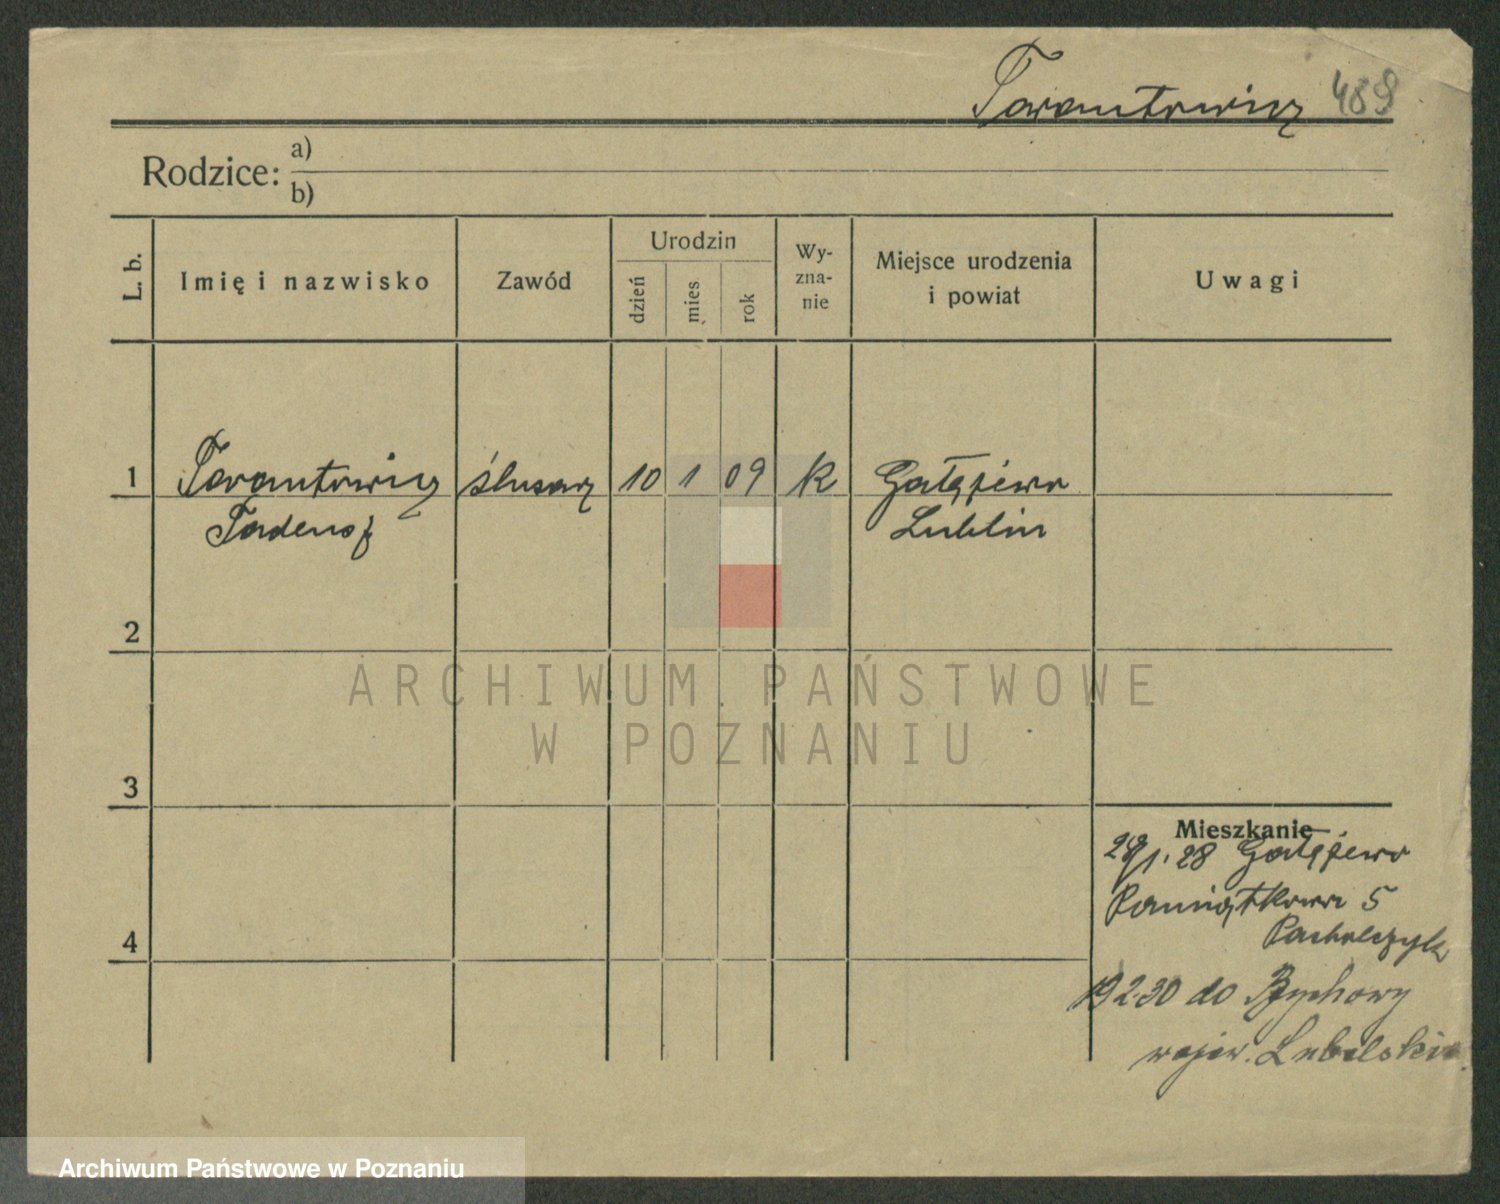 Tarantowicz 489
Rodzice: a)
b)
L. b.
Imię i nazwisko
Zawód
Urodzin
dzień
mies
rok
Wy-
zna-
nie
Miejsce urodzenia
i powiat
Uwagi
1 Tarantowicz ślusarz 10 1 09 K Gałężewo
Tadeusz Lublin
2
3
4
Mieszkanie
28 Gałężewo
Pamiątkowa 5
Pacholczyk
19 2.30 do Bychawy
wojew. Lubelskie
ARCHIWUM PAŃSTWOWE
W POZNANIU
Archiwum Państwowe w Poznaniu